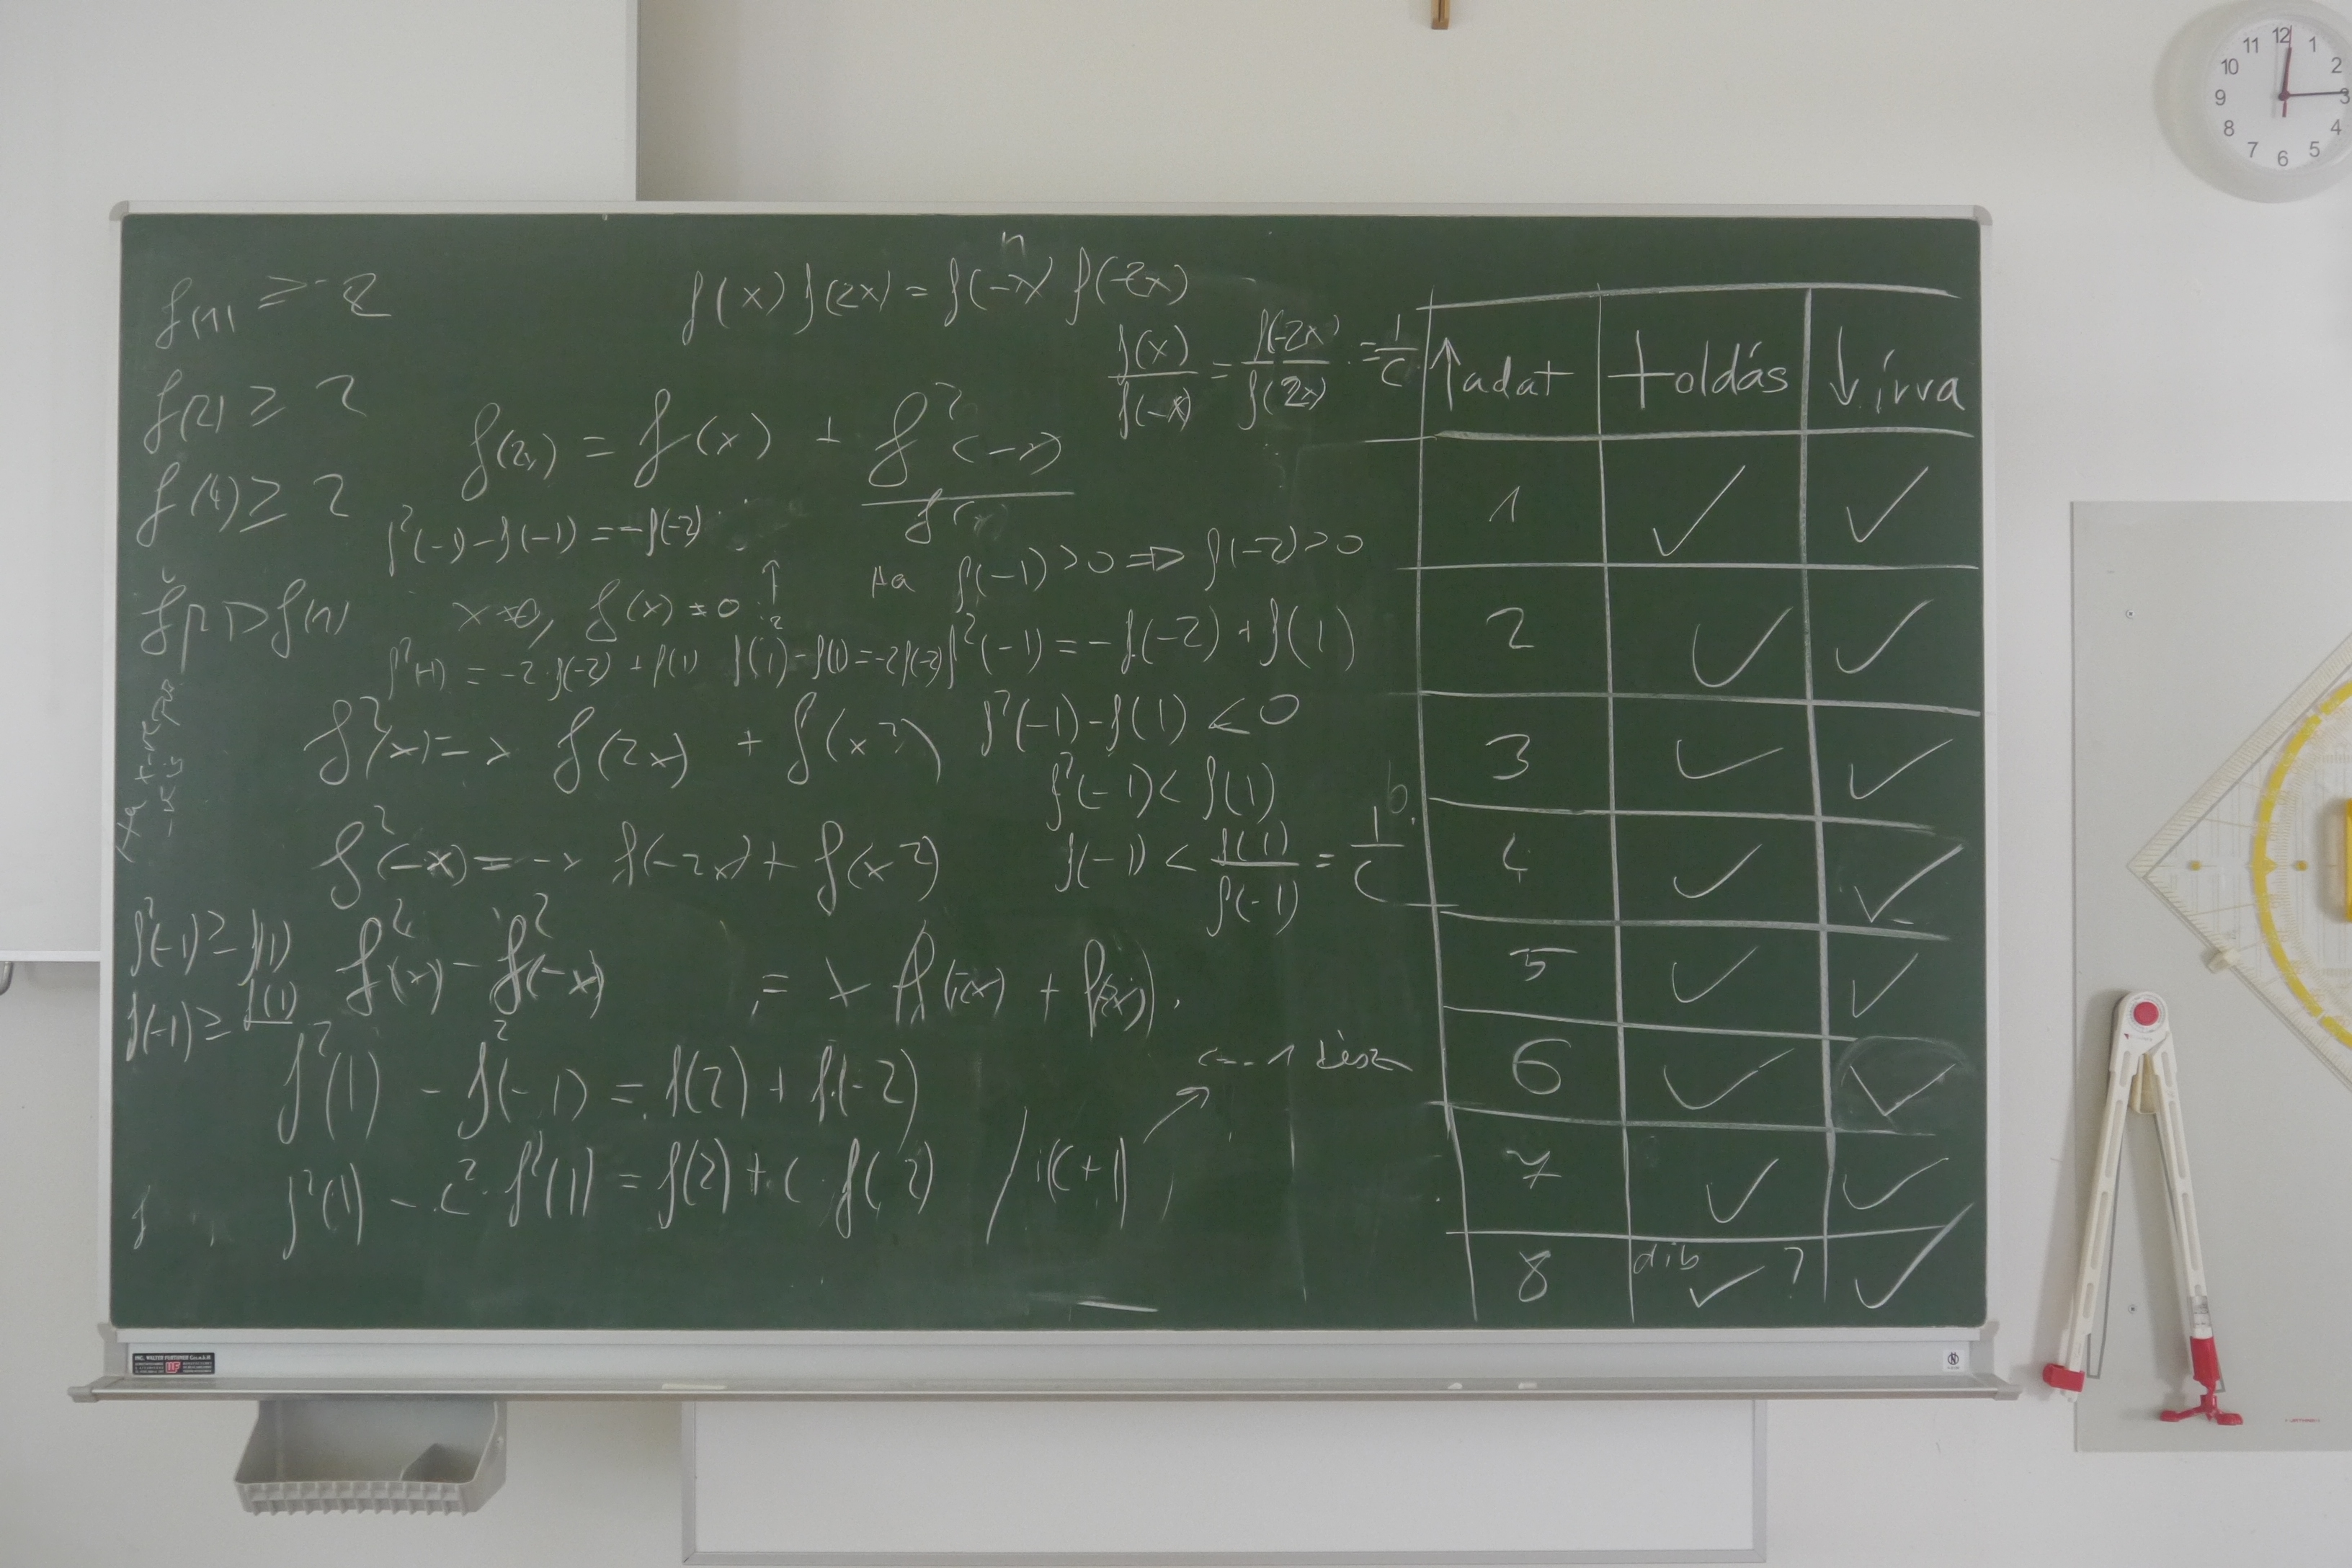 f(1) ≥ -2
f(2) ≥ 2
f(4) ≥ 2
f(x) f(2x) = f(-x) f(-2x)
f(x)/f(-x) = f(-2x)/f(2x) = 1/c
f(2x) = f(x) + f²(-x)/f(x)
f²(-1) - f(-1) = -f(-2)
Ha f(-1) > 0 ⇒ f(-2) > 0
x ≠ 0, f(x) ≠ 0
f²(-1) = -2·f(-2) + f(1)
f²(1) - f(1) = -2f(-2)
f²(-1) = -f(-2) + f(1)
f²(x) = x f(2x) + f(x²)
f²(-1) - f(1) < 0
f²(-1) < f(1)
f²(-x) = -x f(-2x) + f(x²)
f(-1) < f(1)/f(-1) = 1/c
f²(-1) ≥ f(1)
f(-1) ≥ f(1)
f²(x) - f²(-x) = x f(2x) + f(-2x).
f²(1) - f²(-1) = f(2) + f(-2)
f²(1) - c²·f²(1) = f(2) + c f(2) / :(c+1)
c = -1 kész
↑ adat toldás ↓ írva
1 ✓ ✓
2 ✓ ✓
3 ✓ ✓
4 ✓ ✓
5 ✓ ✓
6 ✓ ✓
7 ✓ ✓
8 dib ✓ ? ✓
12
1
2
3
4
5
6
7
8
9
10
11